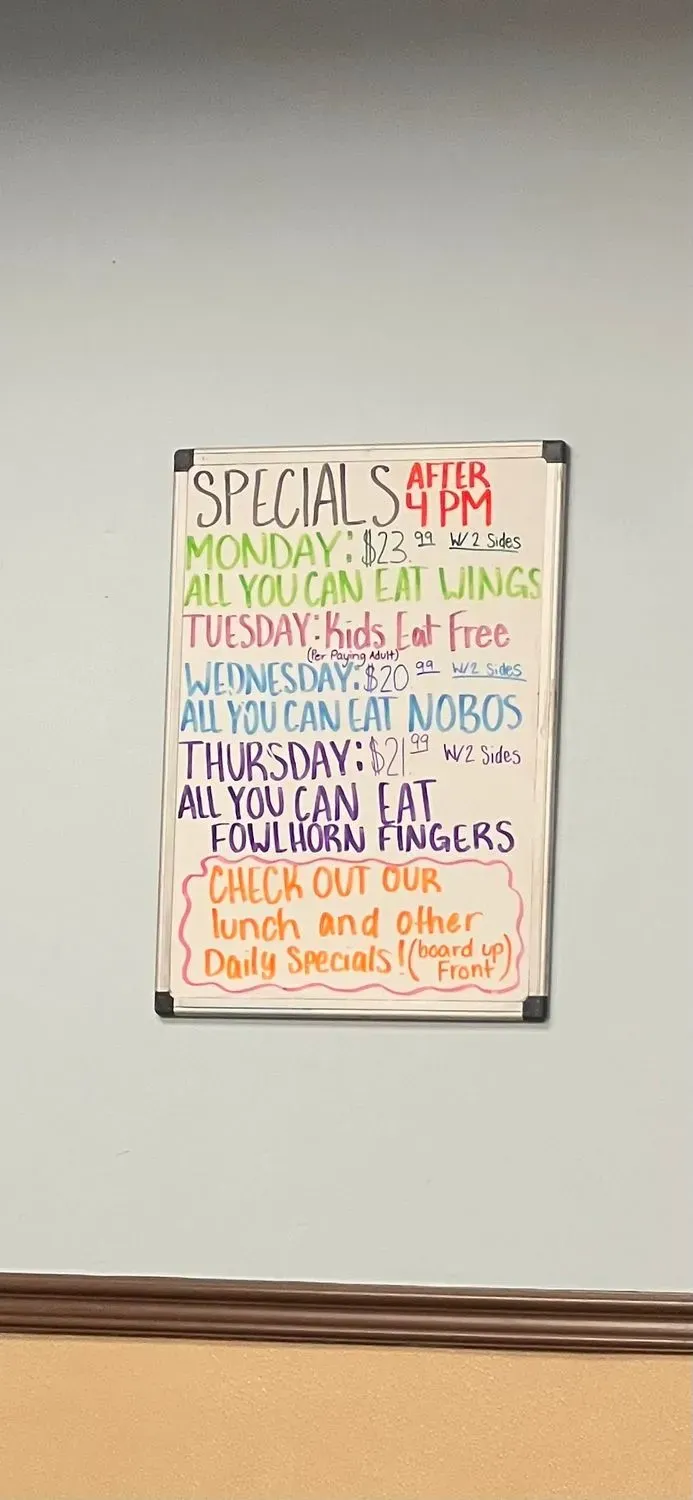 SPECIALS AFTER 4 PM
MONDAY: $23.99 W/2 Sides
ALL YOU CAN EAT WINGS
TUESDAY: Kids Eat Free
(Per Paying Adult)
WEDNESDAY: $20.99 W/2 Sides
ALL YOU CAN EAT NOBOS
THURSDAY: $21.99 W/2 Sides
ALL YOU CAN EAT
FOWLHORN FINGERS
CHECK OUT OUR
lunch and other
Daily Specials! (board up Front)